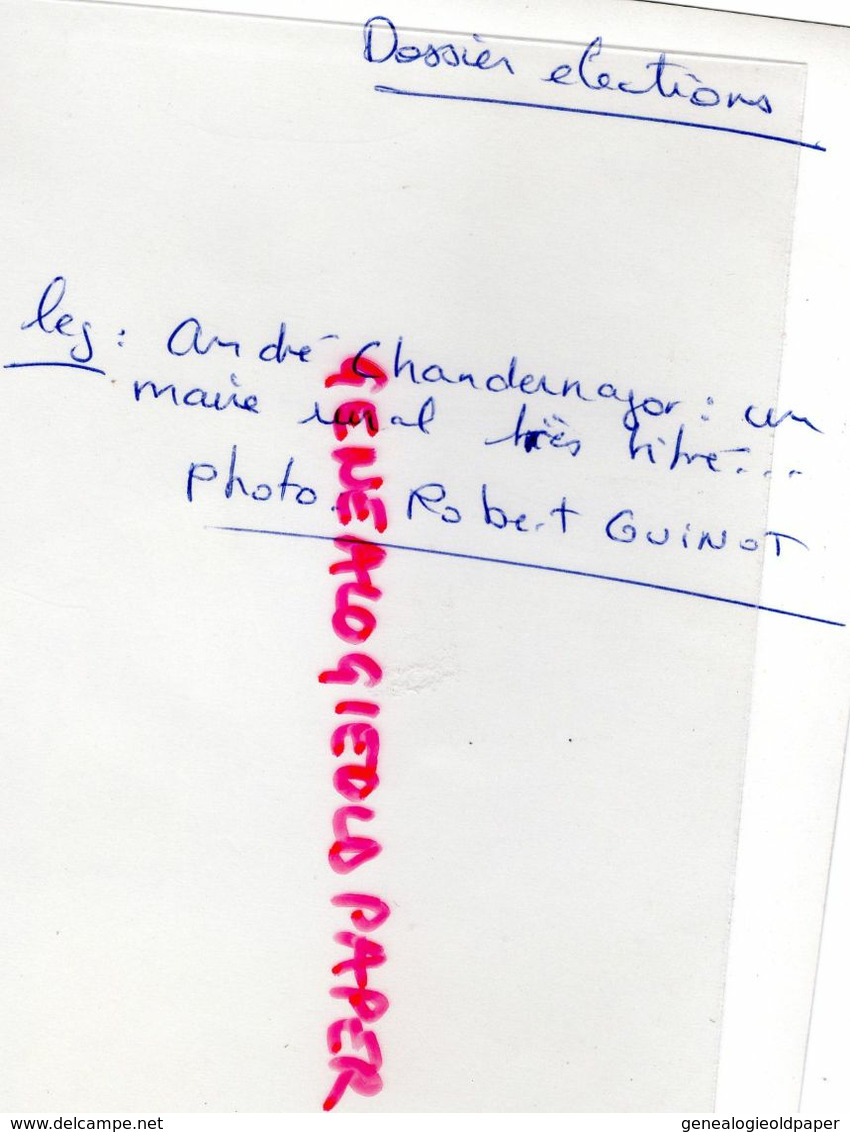 Dossier elections
leg : André Chandernagor : un
maire rural très titré...
photo. Robert GUINOT
GENEALOGIEOLD PAPER
www.delcampe.net
genealogieoldpaper